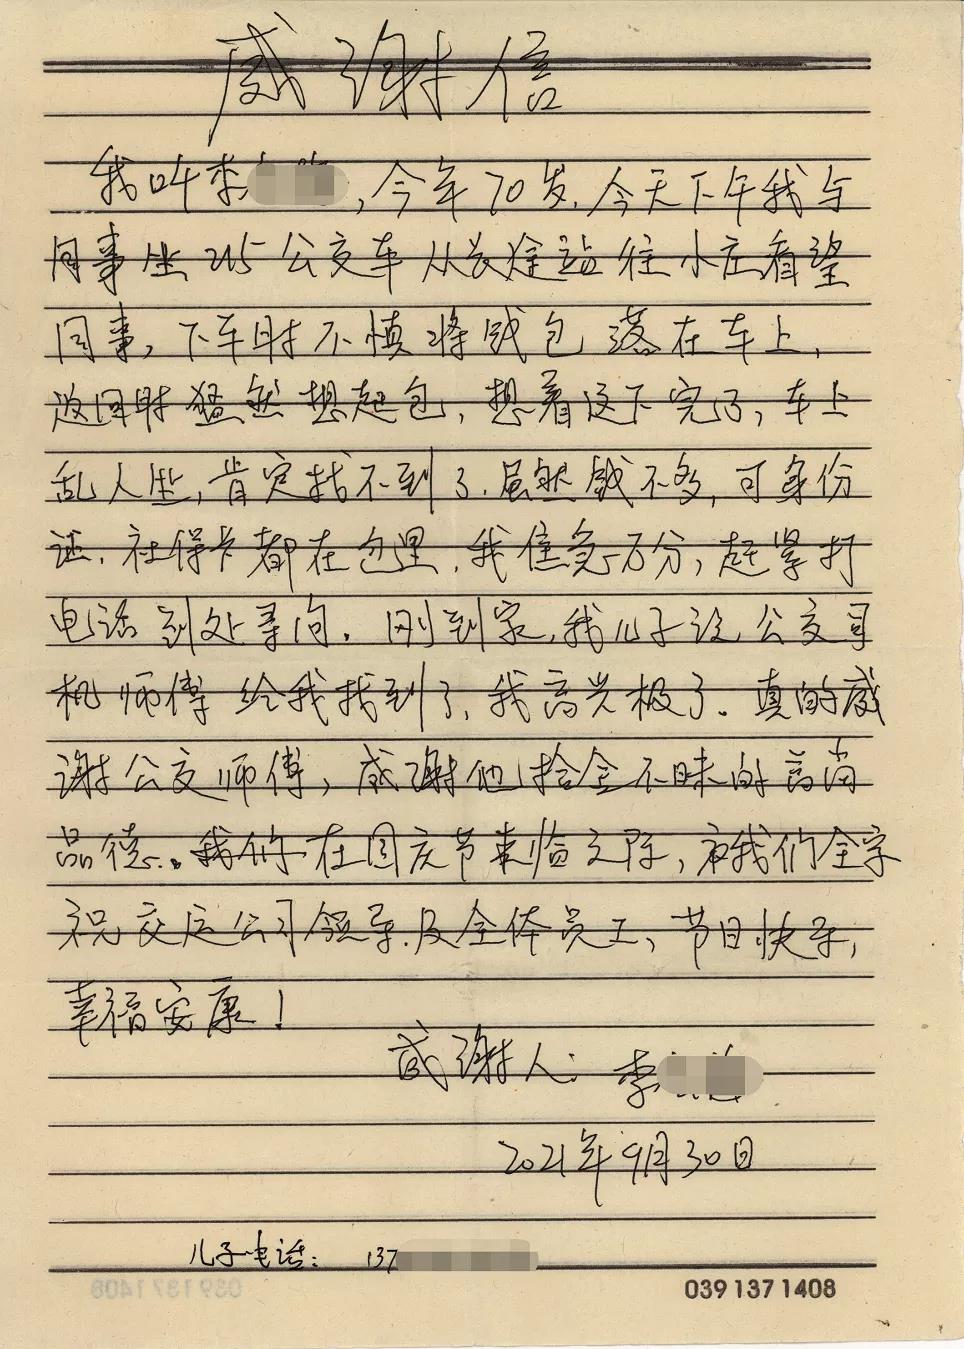 感谢信
我叫李,今年70岁.今天下午我与
同事坐215公交车从长途站往小庄看望
同事,下车时不慎将钱包落在车上,
返回时猛然想起包,想着这下完了,车上
乱人坐,肯定找不到了.虽然钱不多,可身份
证.社保卡都在包里.我焦急万分,赶紧打
电话到处寻问.刚到家,我儿子说公交司
机师傅给我找到了,我高兴极了.真的感
谢公交师傅,感谢他拾金不昧的高尚
品德..我们在国庆节来临之际,我们全家
祝交运公司领导.及全体员工、节日快乐,
幸福安康!
感谢人:李
2021年9月30日
儿子电话:137
039 137 1408